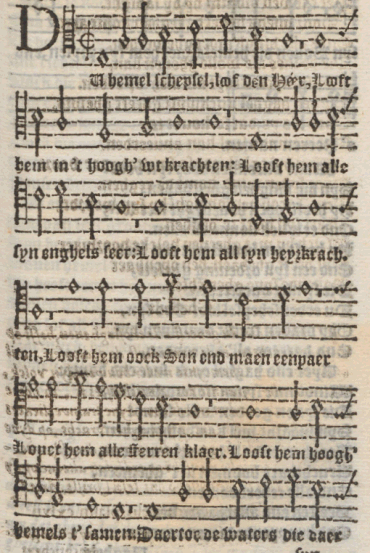 DU hemel schepsel, lof den Heer, Looft
hem in't hoogh' wt krachten: Looft hem alle
syn enghels seer: Looft hem all syn heyrkrach.
ten, Looft hem oock Son end maen eenpaer
Loouet hem alle sterren klaer. Looft hem hoogh'
hemels t' samen: Daertoe de waters die daer